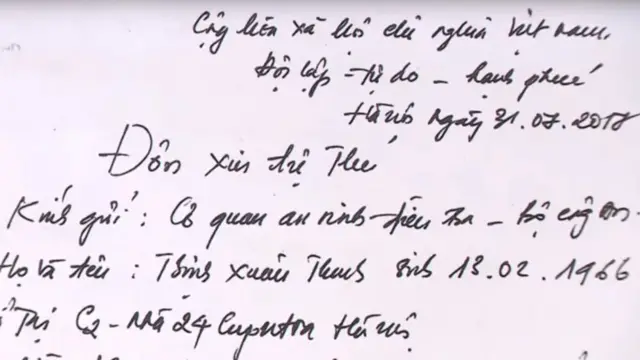 Cộng hòa xã hội chủ nghĩa Việt nam.
Độc lập - tự do - hạnh phúc
Hà nội ngày 31.07.2017
Đơn xin tự Thú
Kính gửi: Cơ quan an ninh điều tra - Bộ công an.
Họ và tên: Trịnh Xuân Thanh sinh 13.02.1966
Tại C2 - Nhà 24 Ciputra Hà nội